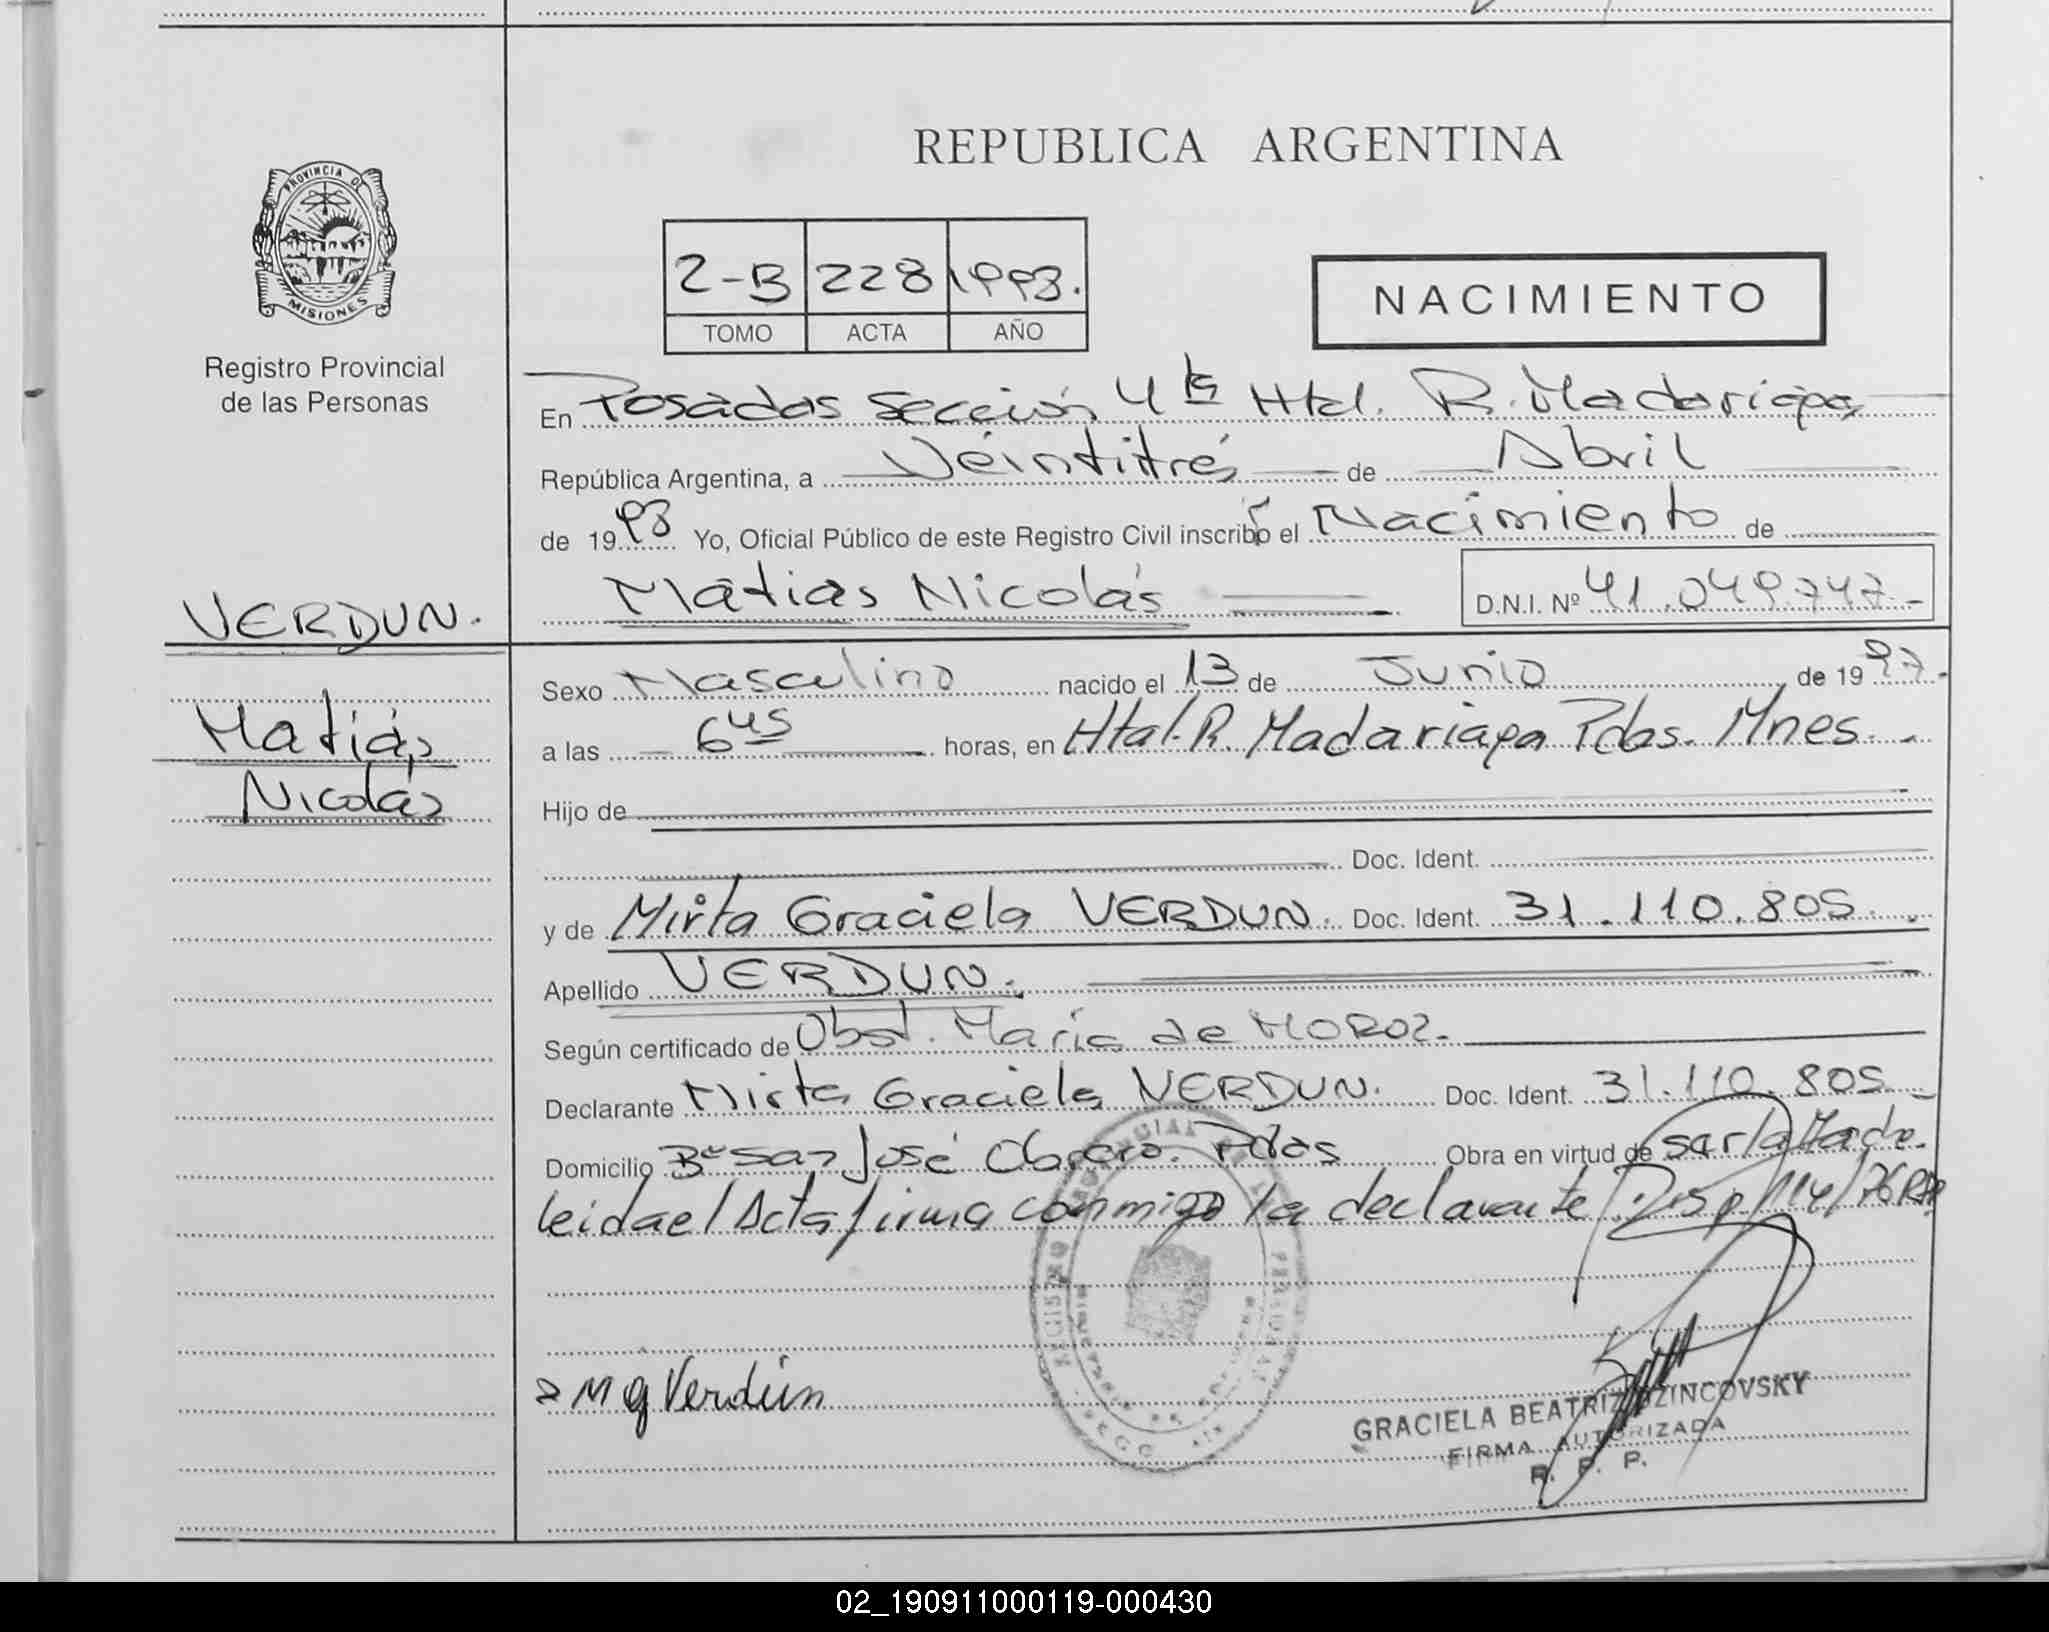 REPUBLICA ARGENTINA
PROVINCIA DE
MISIONES
Registro Provincial
de las Personas
2-B 228 1998.
TOMO ACTA AÑO
NACIMIENTO
En Posadas Sección 4ta Htal. R. Madariaga
República Argentina, a Veintitrés de Abril
de 1998 Yo, Oficial Público de este Registro Civil inscribo el Nacimiento de
Matias Nicolás D.N.I. Nº 41.049.747.-
VERDUN.
Matiás
Nicolás
Sexo Masculino nacido el 13 de Junio de 1997.
a las 6 45 horas, en Htal. R. Madariaga Pdas. Mnes.
Hijo de
Doc. Ident.
y de Mirta Graciela VERDUN. Doc. Ident. 31.110.805.
Apellido VERDUN.
Según certificado de Obst. Maria de MOROZ.
Declarante Mirta Graciela VERDUN. Doc. Ident. 31.110.805
Domicilio Bº San José Obrero. Pdas Obra en virtud de ser la Madre.
leida el Acta firma conmigo la declarante Disp/114/76
M g Verdún
GRACIELA BEATRIZ OZINCOVSKY
FIRMA AUTORIZADA
R. P. P.
02_190911000119-000430